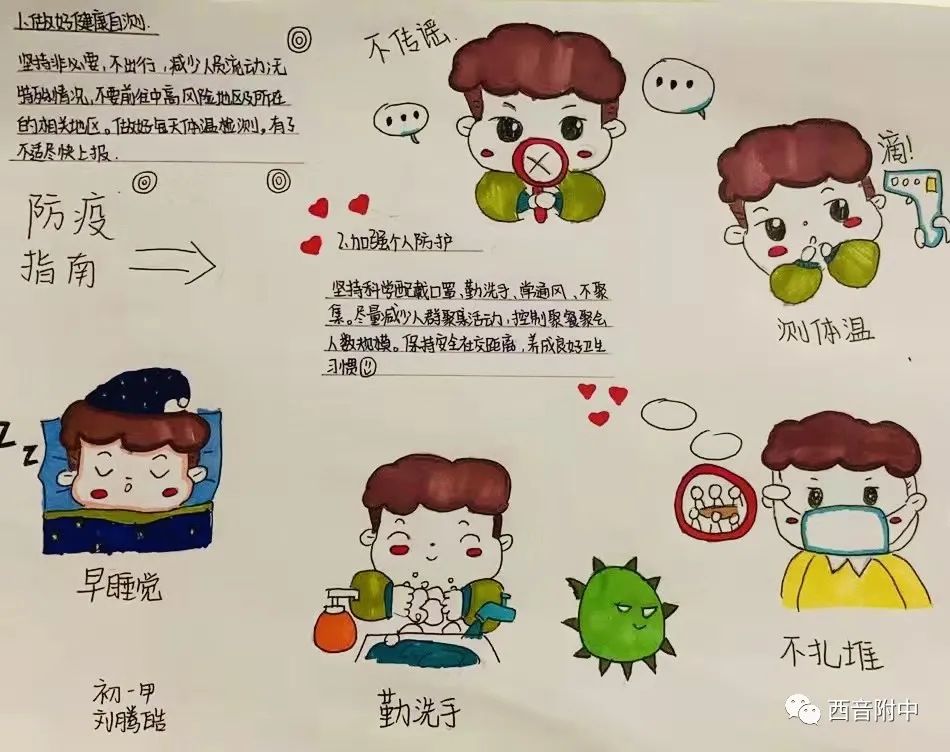 1.做好健康自测.
坚持非必要,不出行,减少人员流动,无
特殊情况,不要前往中高风险地区及所在
的相关地区。做好每天体温检测。有了
不适尽快上报.
防疫
指南
不传谣.
2.加强个人防护
坚持科学配戴口罩、勤洗手、常通风、不聚
集。尽量减少人群聚集活动,控制聚餐聚会
人数规模。保持安全社交距离,养成良好卫生
习惯
滴!
测体温
Z
Z
早睡觉
勤洗手
不扎堆
初一甲
刘腾皓
西音附中